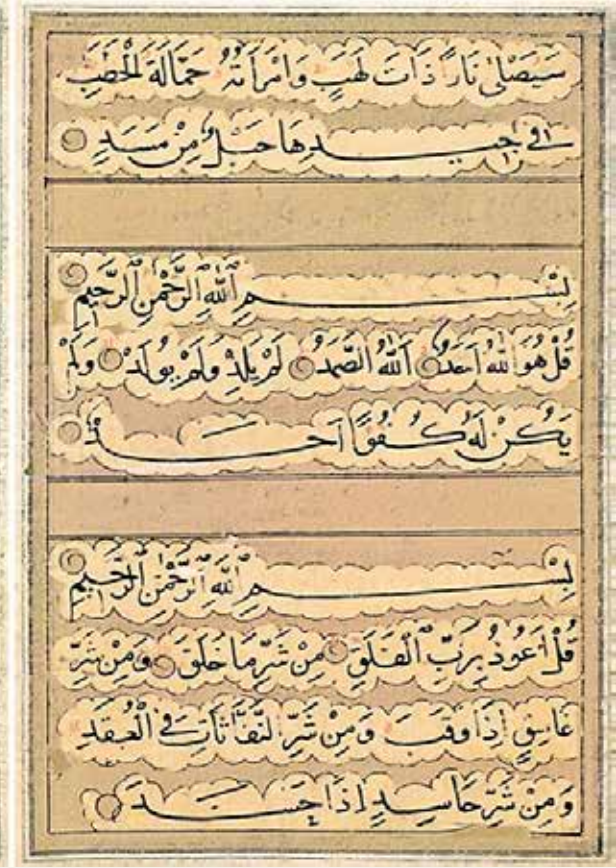 سَيَصْلٰى نَارًا ذَاتَ لَهَبٍ وَامْرَاَتُهُ حَمَّالَةَ الْحَطَبِ
فٖى جٖيدِهَا حَبْلٌ مِنْ مَسَدٍ
بِسْمِ ٱللّٰهِ ٱلرَّحْمٰنِ ٱلرَّحٖيمِ
قُلْ هُوَ اللّٰهُ اَحَدٌ اَللّٰهُ الصَّمَدُ لَمْ يَلِدْ وَلَمْ يُولَدْ وَلَمْ
يَكُنْ لَهُ كُفُوًا اَحَدٌ
بِسْمِ ٱللّٰهِ ٱلرَّحْمٰنِ ٱلرَّحٖيمِ
قُلْ اَعُوذُ بِرَبِّ ٱلْفَلَقِ مِنْ شَرِّ مَا خَلَقَ وَمِنْ شَرِّ
غَاسِقٍ اِذَا وَقَبَ وَمِنْ شَرِّ النَّفَّاثَاتِ فِى الْعُقَدِ
وَمِنْ شَرِّ حَاسِدٍ اِذَا حَسَدَ